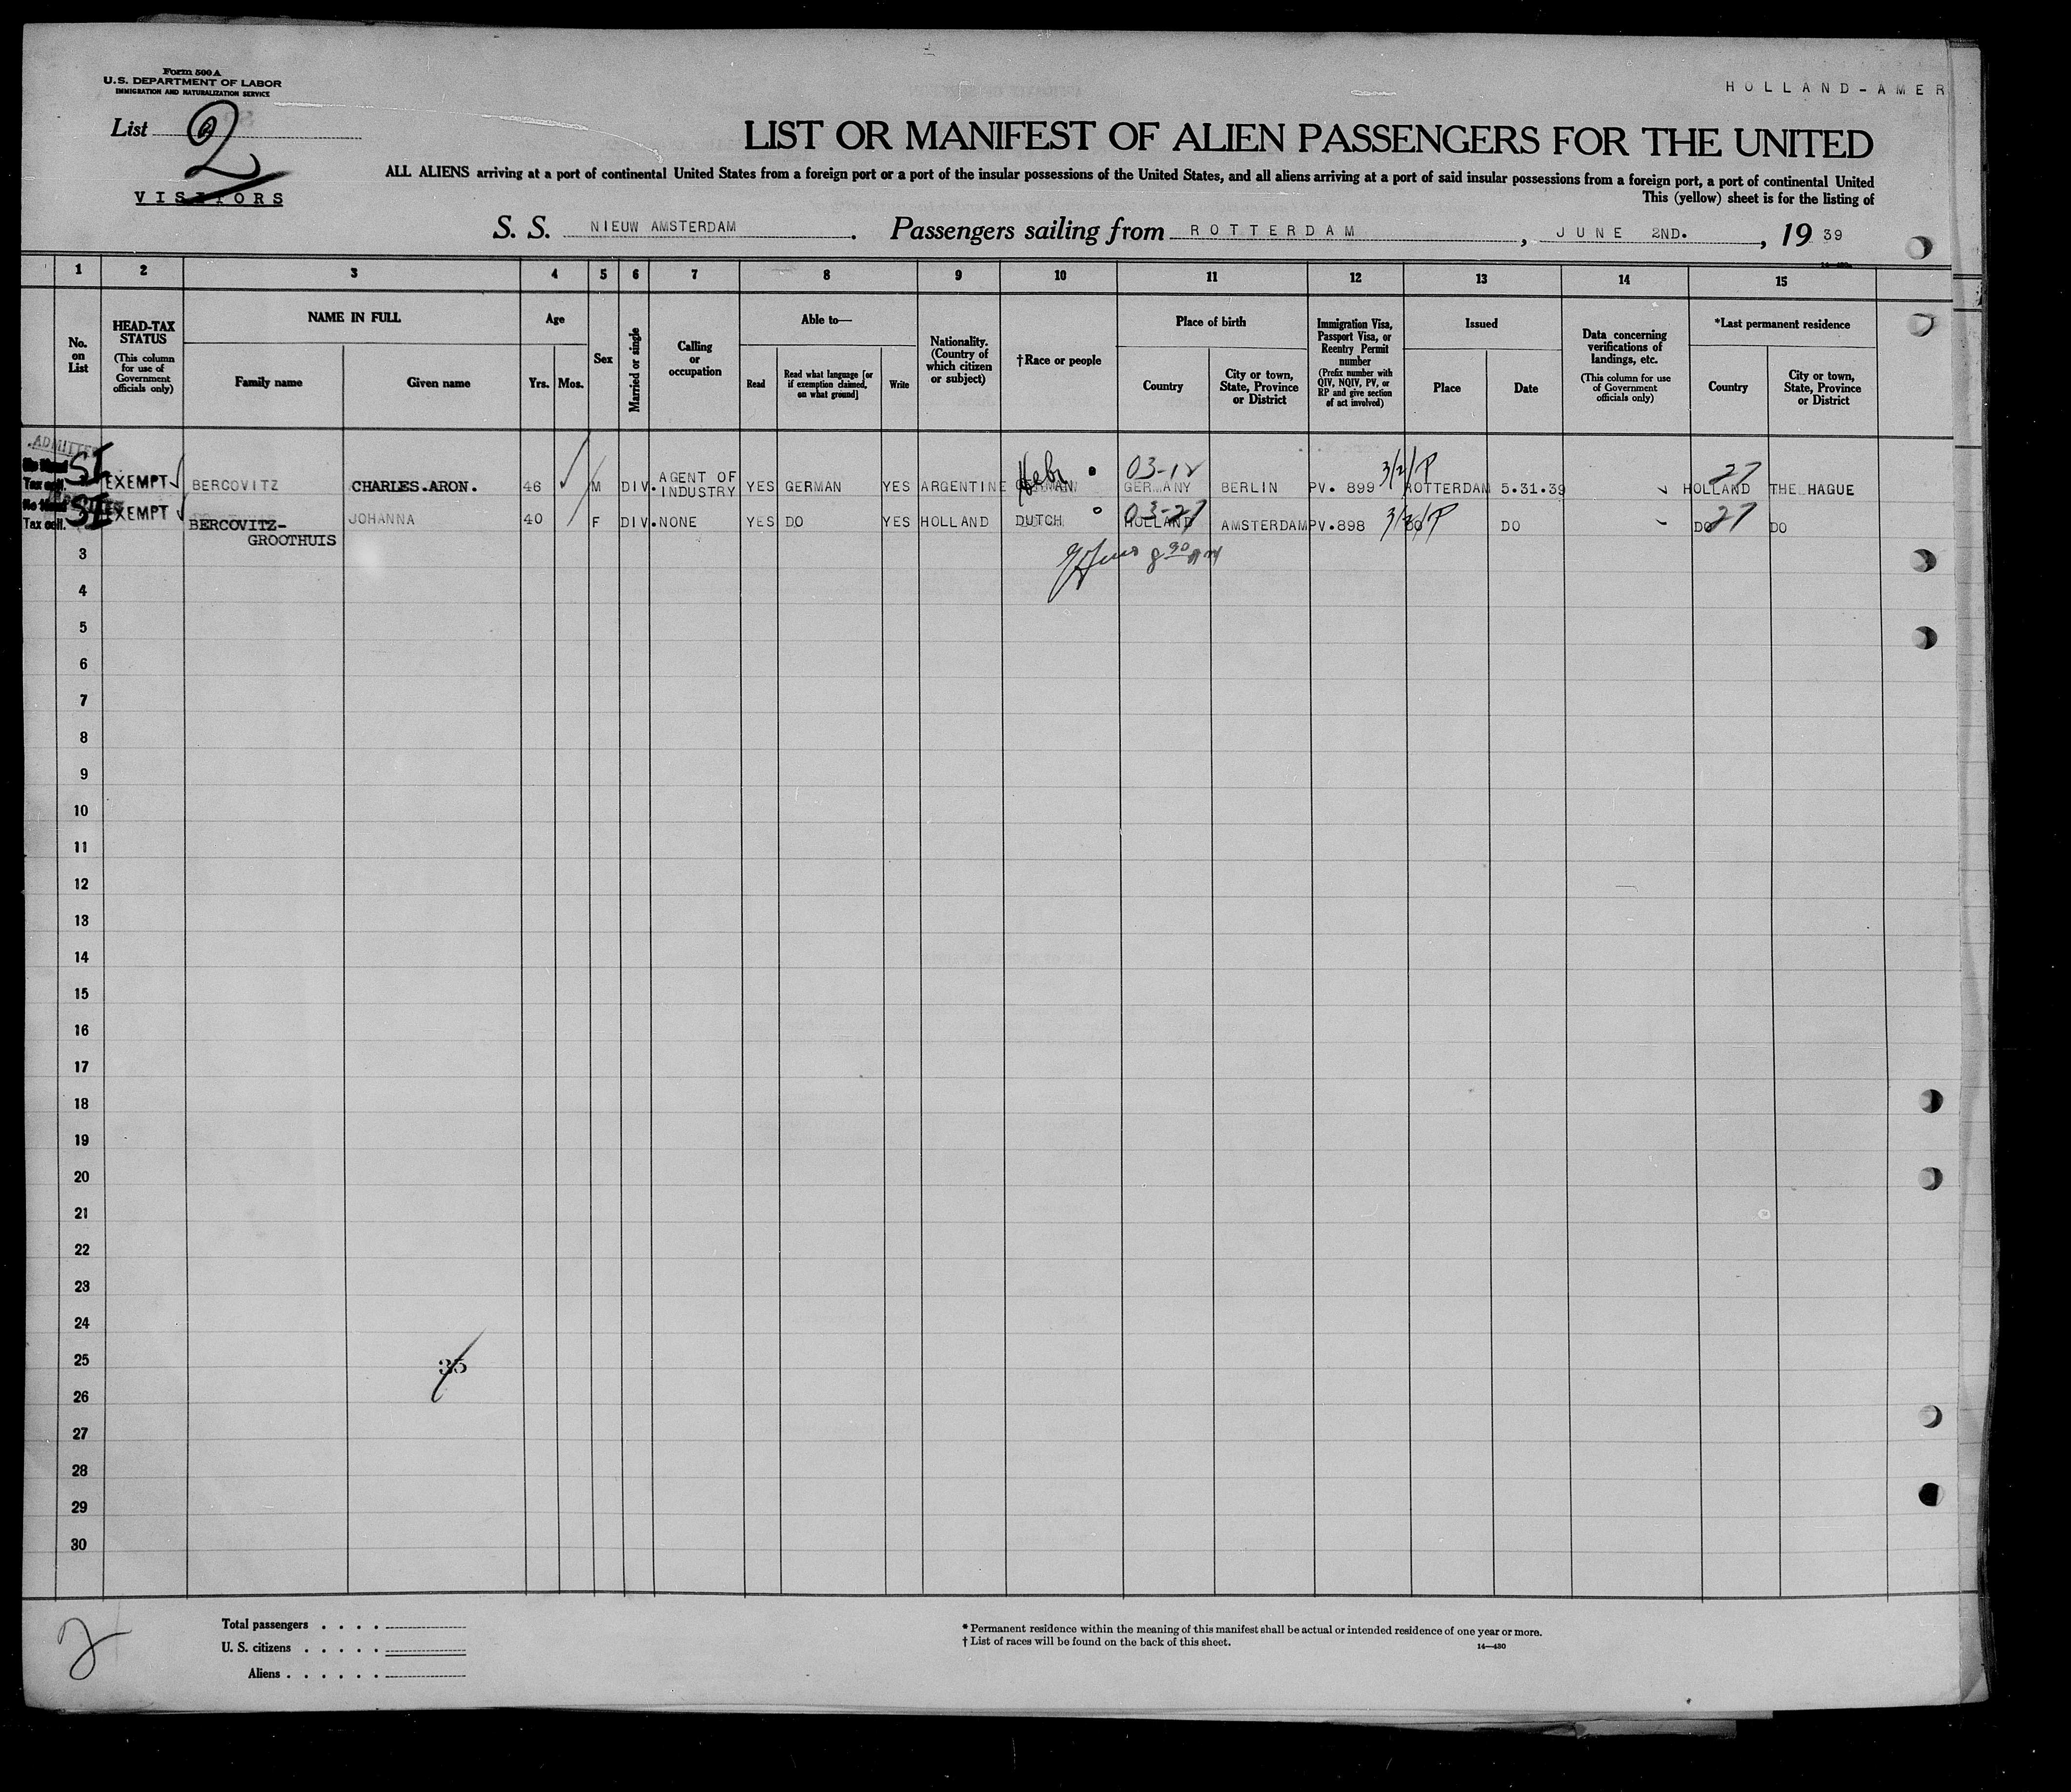 Form 500 A
U.S. DEPARTMENT OF LABOR
IMMIGRATION AND NATURALIZATION SERVICE
HOLLAND-AMER
List 2
VISITORS
LIST OR MANIFEST OF ALIEN PASSENGERS FOR THE UNITED
ALL ALIENS arriving at a port of continental United States from a foreign port or a port of the insular possessions of the United States, and all aliens arriving at a port of said insular possessions from a foreign port, a port of continental United
This (yellow) sheet is for the listing of
S. S. NIEUW AMSTERDAM. Passengers sailing from ROTTERDAM, JUNE 2ND., 19 39
1 2 3 4 5 6 7 8 9 10 11 12 13 14 15
No. on List
HEAD-TAX STATUS
(This column for use of Government officials only)
NAME IN FULL
Family name
Given name
Age
Yrs. Mos.
Sex
Married or single
Calling or occupation
Able to—
Read
Read what language [or if exemption claimed, on what ground]
Write
Nationality. (Country of which citizen or subject)
†Race or people
Place of birth
Country
City or town, State, Province or District
Immigration Visa, Passport Visa, or Reentry Permit number
(Prefix number with QIV, NQIV, PV, or RP and give section of act involved)
Issued
Place
Date
Data concerning verifications of landings, etc.
(This column for use of Government officials only)
*Last permanent residence
Country
City or town, State, Province or District
ADMITTED
Tax coll. SI EXEMPT BERCOVITZ CHARLES.ARON. 46 M DIV. AGENT OF INDUSTRY YES GERMAN YES ARGENTINE GERMAN Hebr 03-12 GERMANY BERLIN PV. 899 3/2/P ROTTERDAM 5.31.39 27 HOLLAND THE HAGUE
Tax coll. SI EXEMPT BERCOVITZ-GROOTHUIS JOHANNA 40 F DIV. NONE YES DO YES HOLLAND DUTCH 03-27 HOLLAND AMSTERDAM PV.898 3/2/P DO DO DO 27 DO
8 30 AM
3
4
5
6
7
8
9
10
11
12
13
14
15
16
17
18
19
20
21
22
23
24
25
35
26
27
28
29
30
2
Total passengers
U. S. citizens
Aliens
* Permanent residence within the meaning of this manifest shall be actual or intended residence of one year or more.
† List of races will be found on the back of this sheet.
14—430